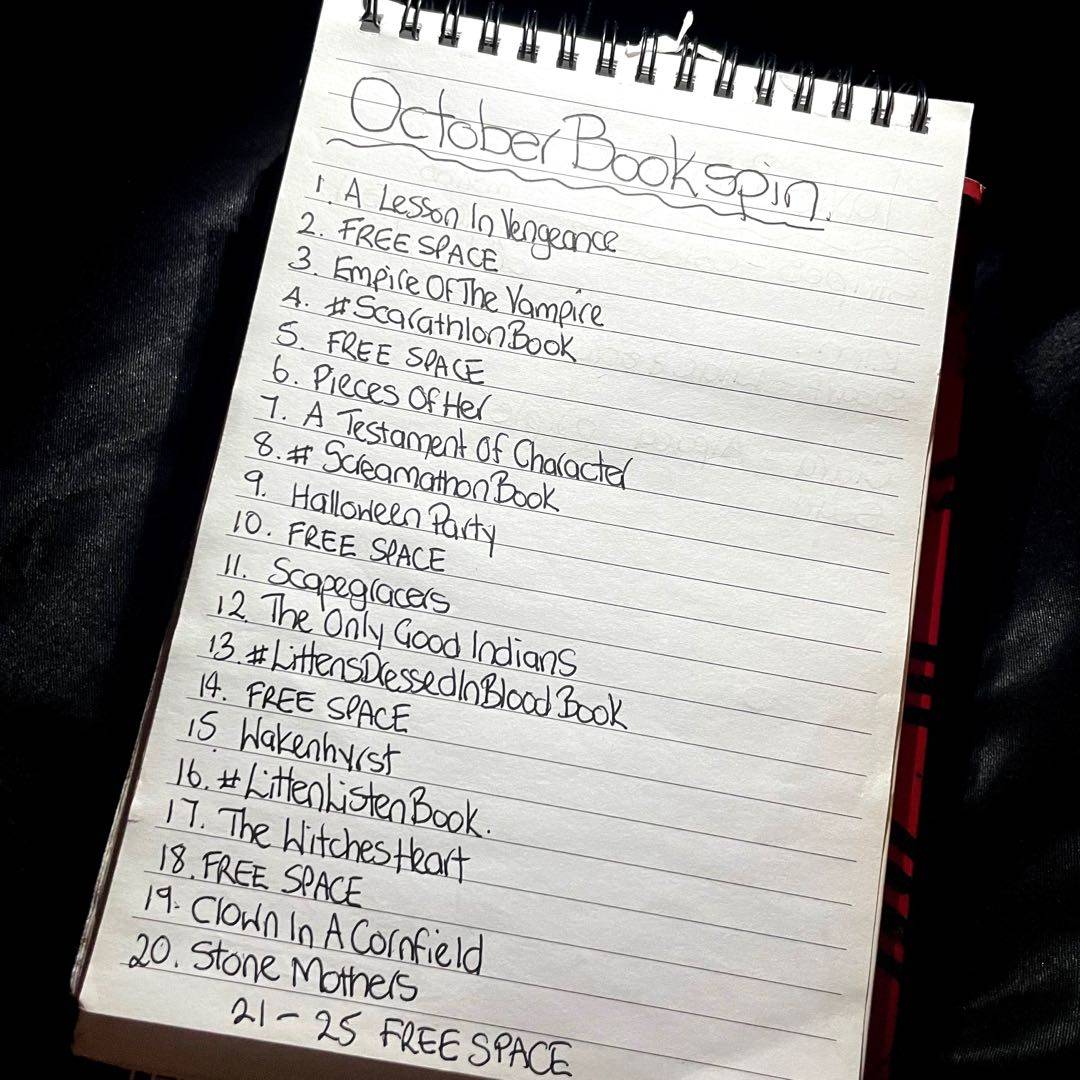 October Bookspin.
1. A Lesson In Vengeance
2. FREE SPACE
3. Empire Of The Vampire
4. #ScarathlonBook
5. FREE SPACE
6. Pieces Of Her
7. A Testament Of Character
8. #ScreamathonBook
9. Halloween Party
10. FREE SPACE
11. Scapegracers
12. The Only Good Indians
13. #LittensDressedInBloodBook
14. FREE SPACE
15. Wakenhyrst
16. #LittenListenBook.
17. The Witches Heart
18. FREE SPACE
19. Clown In A Cornfield
20. Stone Mothers
21 - 25 FREE SPACE